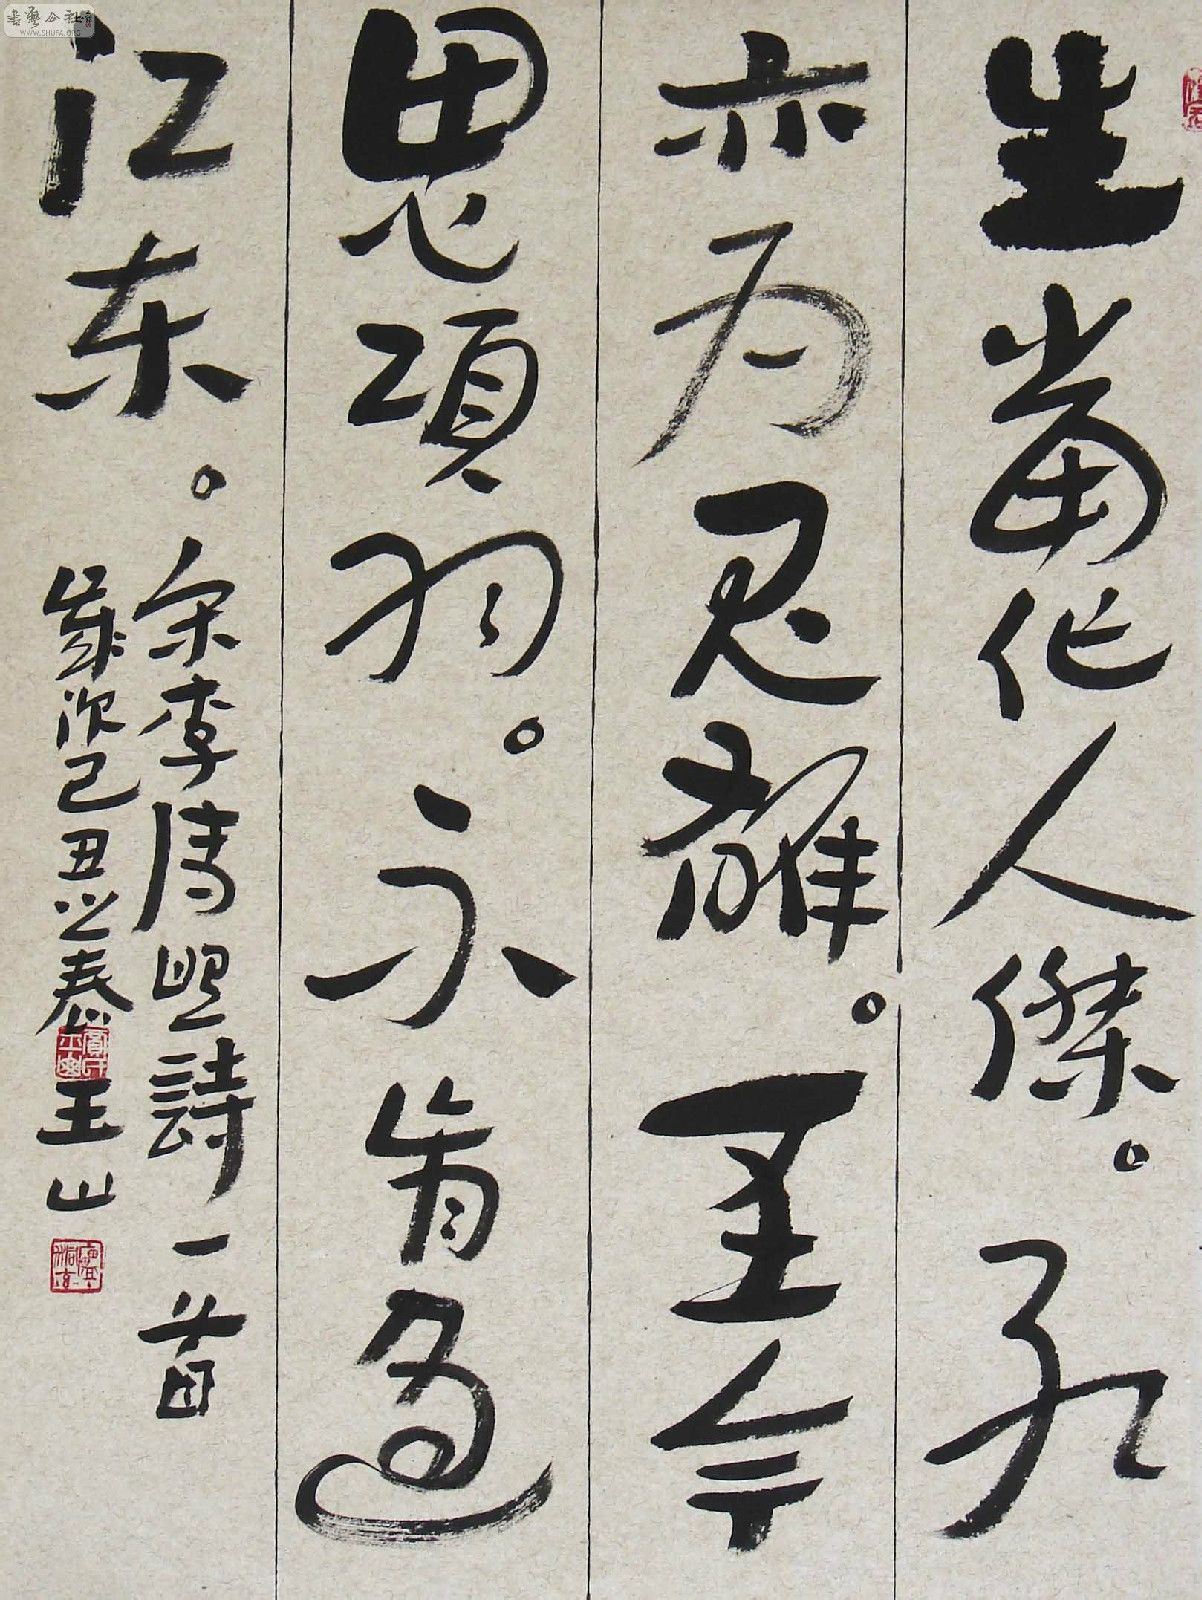 書藝公社
WWW.SHUFA.ORG
生當作人傑。死
亦为鬼雄。至今
思項羽。不肯過
江东。宋李清照詩一首
歲次己丑之春玉山